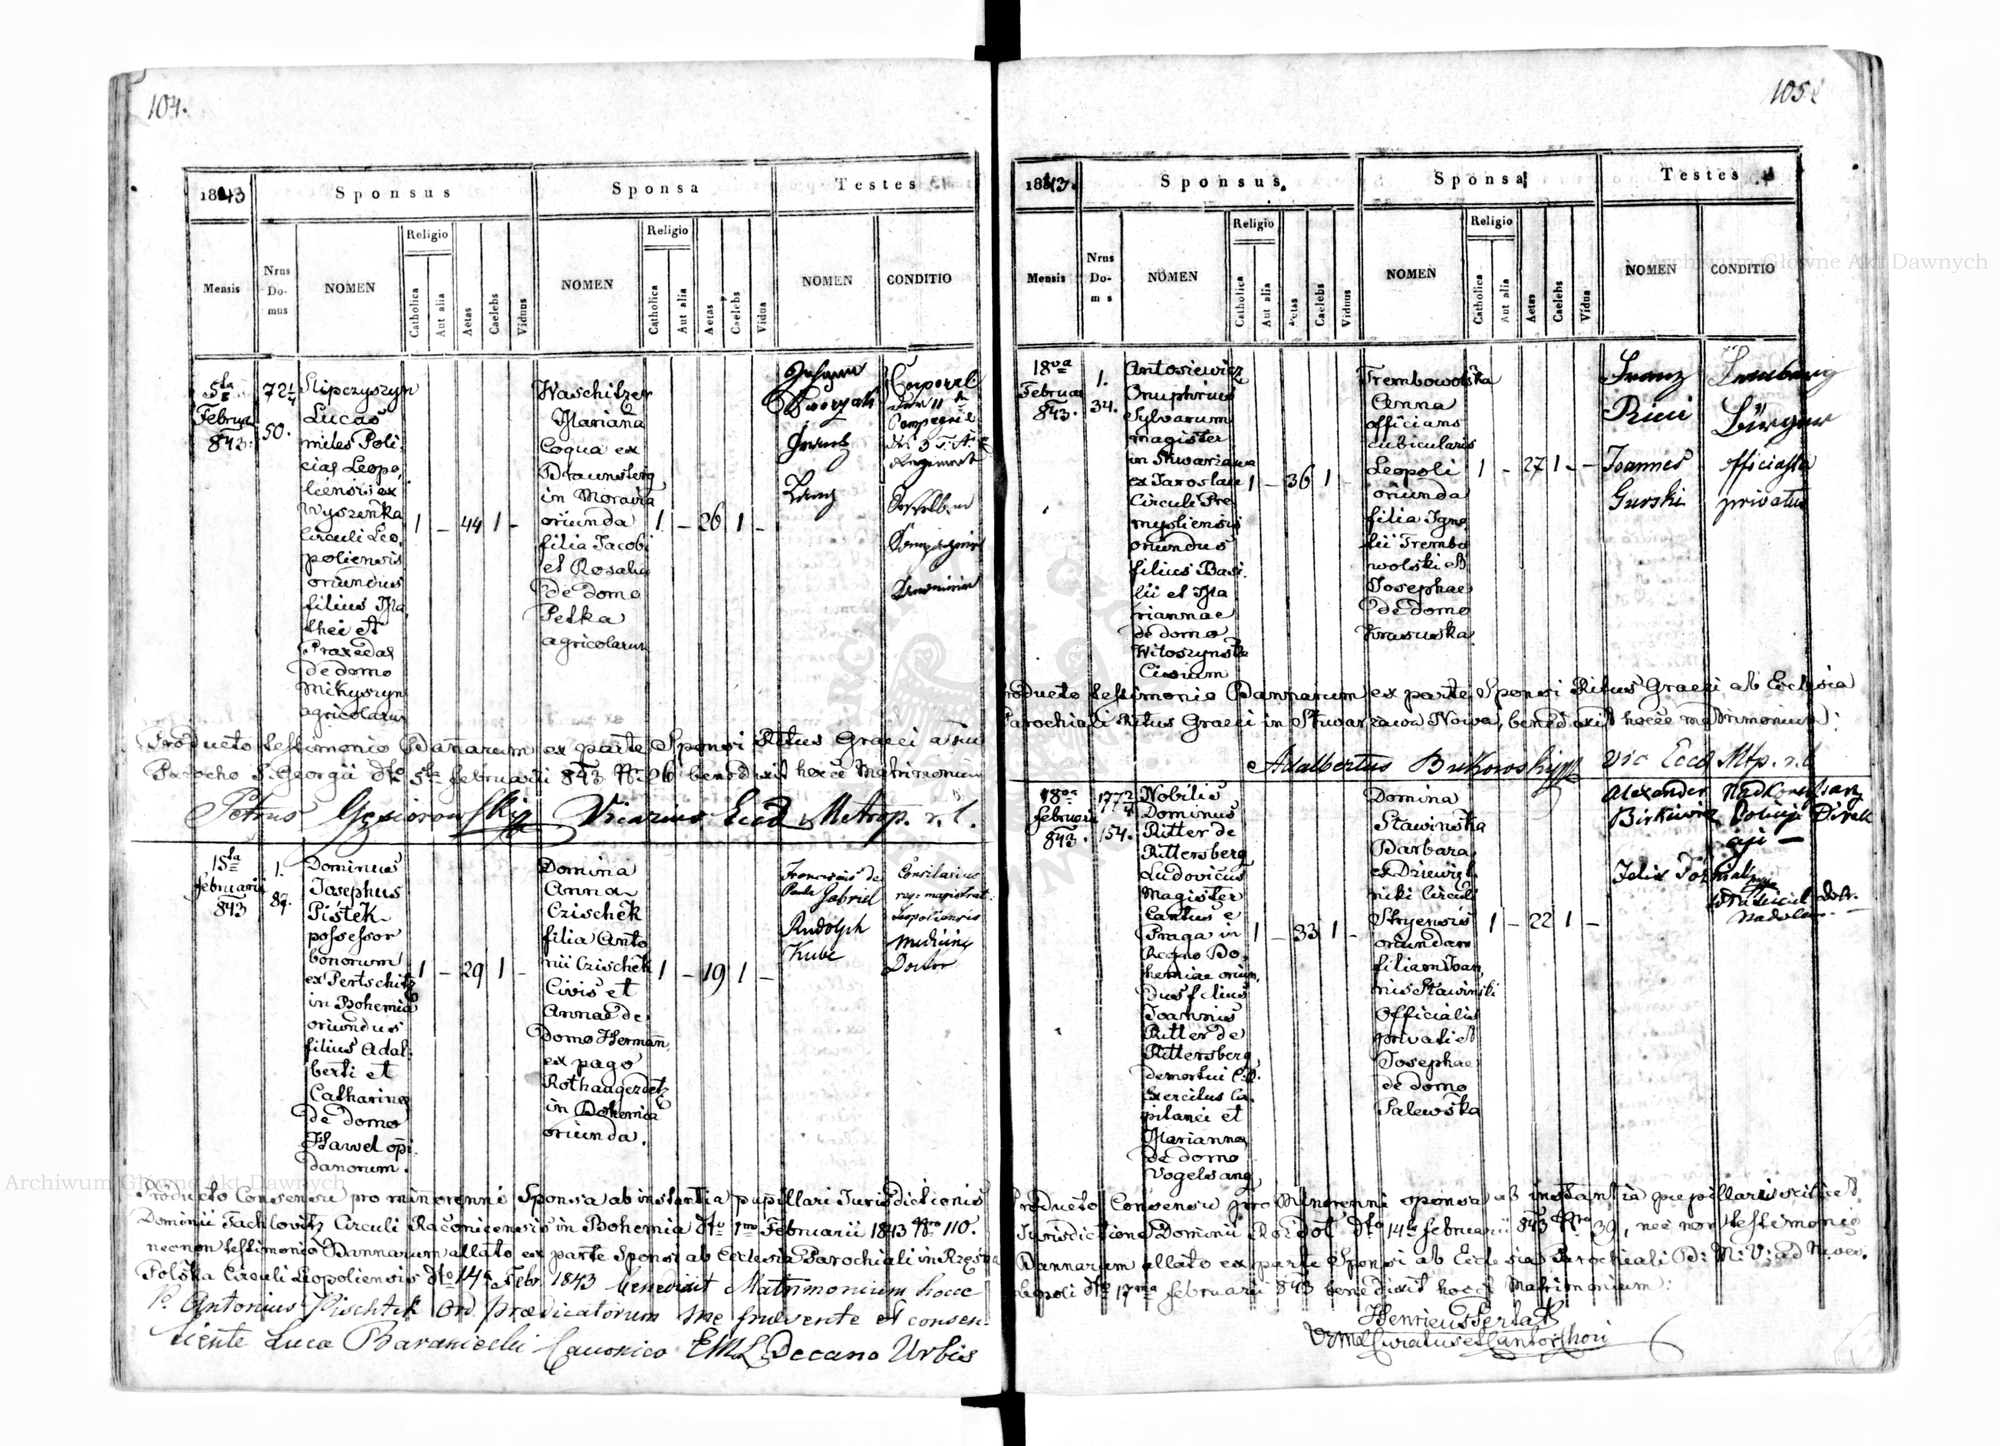 104.
1843
Sponsus
Sponsa
Testes
Mensis
Nrus Do- mus
NOMEN
Religio
Catholica
Aut alia
Aetas
Caelebs
Viduus
NOMEN
Religio
Catholica
Aut alia
Aetas
Caelebs
Vidua
NOMEN
CONDITIO
5ta
Februar
843.
72 2/4
50.
Slipczyszyn
Lucas
miles Poli
ciae Leopo
liensis ex
Wyszenka
Circuli Leo
poliensis
oriundus
filius Ma
thei et
Praxedas
de domo
Mikyszyn
agricolarum
1 – 44 1 –
Waschitzer
Mariana
Coqua ex
Braunsberg
in Moravia
oriunda
filia Jacobi
et Rosalia
de domo
Petka
agricolarum
1 – 26 1 –
Johann
Franz
Corporal
der 11t
Compagnie
Regiment
Producto testimonio Bannarum ex parte Sponsi Ritus Graeci a suo
Parocho S. Georgii dto 5ta februarii 843 Nr 26 benedixit hocce Matrimonium
Petrus Gąsiorowski Vicarius Eccl Metrop. r. l.
15ta
februarii
843
1.
89.
Dominus
Josephus
Pistek
possessor
bonorum
ex Pertschitz
in Bohemia
oriundus
filius Adal
berti et
Catharina
de domo
Hawel opi
danorum.
1 – 29 1 –
Domina
Anna
Czischek
filia Anto
nii Czischek
Civis et
Annae de
Domo Hermañ,
ex pago
Rothaugezdetz
in Bohemia
oriunda.
1 – 19 1 –
Franciscus de
Paula Gabriel
Rudolph
Kube
Consilarius
magistrat.
Leopoliensis
Medicine
Doctor
Producto Consensu pro minorenni Sponsa ab instantia pupillari Jurisdictionis
Dominii Tachlovitz Circuli Raconicensis in Bohemia dto 1mo Februarii 1843 Nro 110.
necnon testimonio Bannarum allato ex parte Sponsi ab Ecclesia Parochiali in Rzęsna
Polska Circuli Leopoliensis dto 14 Febr. 1843 benedixit Matrimonium hocce
P. Antonius Pischtek Ord praedicatorum me presente et consen-
tiente Luca Baraniecki Canonico EML Decano Urbis
105
1843.
Sponsus.
Sponsa
Testes
Mensis
Nrus Do- m s
NOMEN
Religio
Catholica
Aut alia
Aetas
Caelebs
Viduus
NOMEN
Religio
Catholica
Aut alia
Aetas
Caelebs
Vidua
NOMEN
CONDITIO
18va
Februar
843.
1.
34.
Antosiewicz
Onuphrius
Sylvarum
magister
in Stwarzawa
ex Jaroslau
Circuli Pre
mysliensis
oriundus
filius Basi
lii et Ma
riannae
de domo
Witoszynska
Civium
1 – 36 1 –
Trembowolska
Anna
officians
cubicularis
Leopoli
oriunda
filia Igna
tii Trembo
wolski et
Josephae
de domo
Krasuska
1 – 27 1 –
Franz
Ricci
Joannes
Gurski
Lemberg
Bürger
officiasta
privatus
Producto testimonio Bannarum ex parte Sponsi Ritus Graeci ab Ecclesia
Parochiali Ritus Graeci in Stwarzawa Nowa, benedixit hocce matrimonium:
Adalbertus Bukowski Vic Eccl Mtp. r. l.
18va
februarii
843.
177 2/4
154.
Nobilis
Dominus
Ritter de
Rittersberg
Ludovicus
Magister
Cantus e
Praga in
Regno Bo
hemiae oriun
dus filius
Joannis
Ritter de
Rittersberg
demortui C.R.
Exercitus Ca
pitanei et
Marianna
de domo
Vogelsang
1 – 33 1 –
Domina
Stawinska
Barbara
ex Dziewięt
niki Circuli
Stryensis
oriundam
filiam Joan
nis Stawinski
Officialis
privati et
Josephae
de domo
Palewska
1 – 22 1 –
Alexander
Birkiewicz
Felix
Policyi Direk
cyi —
Producto Consensu pro Minorenni sponsa ab instantia pupillari scilicet
Jurisdictione Dominii Rozdol dto 14ta februarii 843 Nro 39, nec non testimonio
Bannarum allato ex parte Sponsi ab Ecclesia Parochiali B: M: V: ad Nives.
Leopoli dto 17ma februarii 843 benedixit hocce Matrimonium:
Henricus Serlat
Curatus et Cantor Chori
Archiwum Główne Akt Dawnych
Archiwum Główne Akt Dawnych